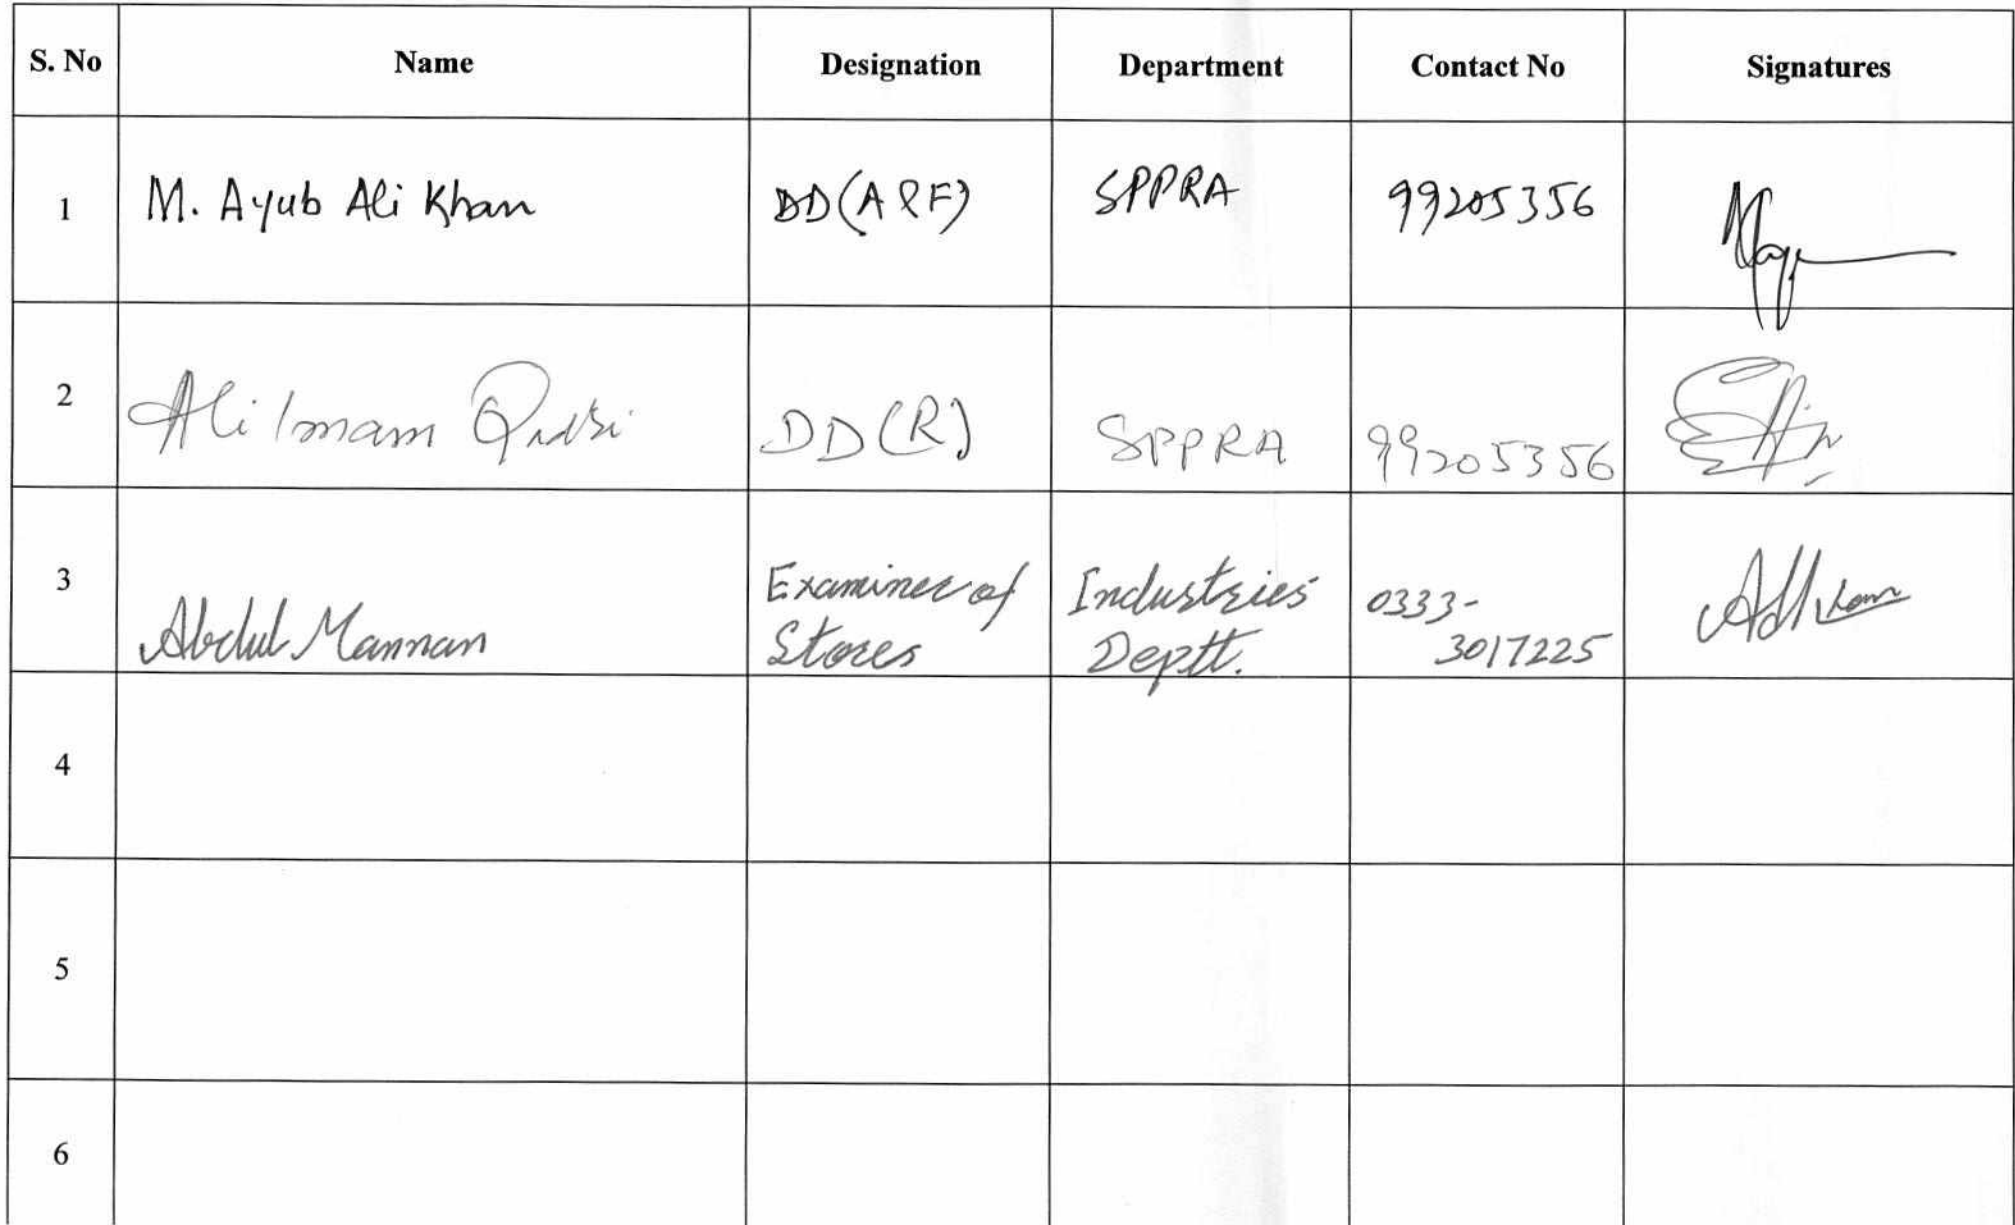 S. No Name Designation Department Contact No Signatures
1 M. Ayub Ali Khan DD(A&F) SPPRA 99205356
2 Ali Imam DD(R) SPPRA 99205356
3 Abdul Mannan Examiner of Stores Industries Deptt. 0333-3017225
4
5
6